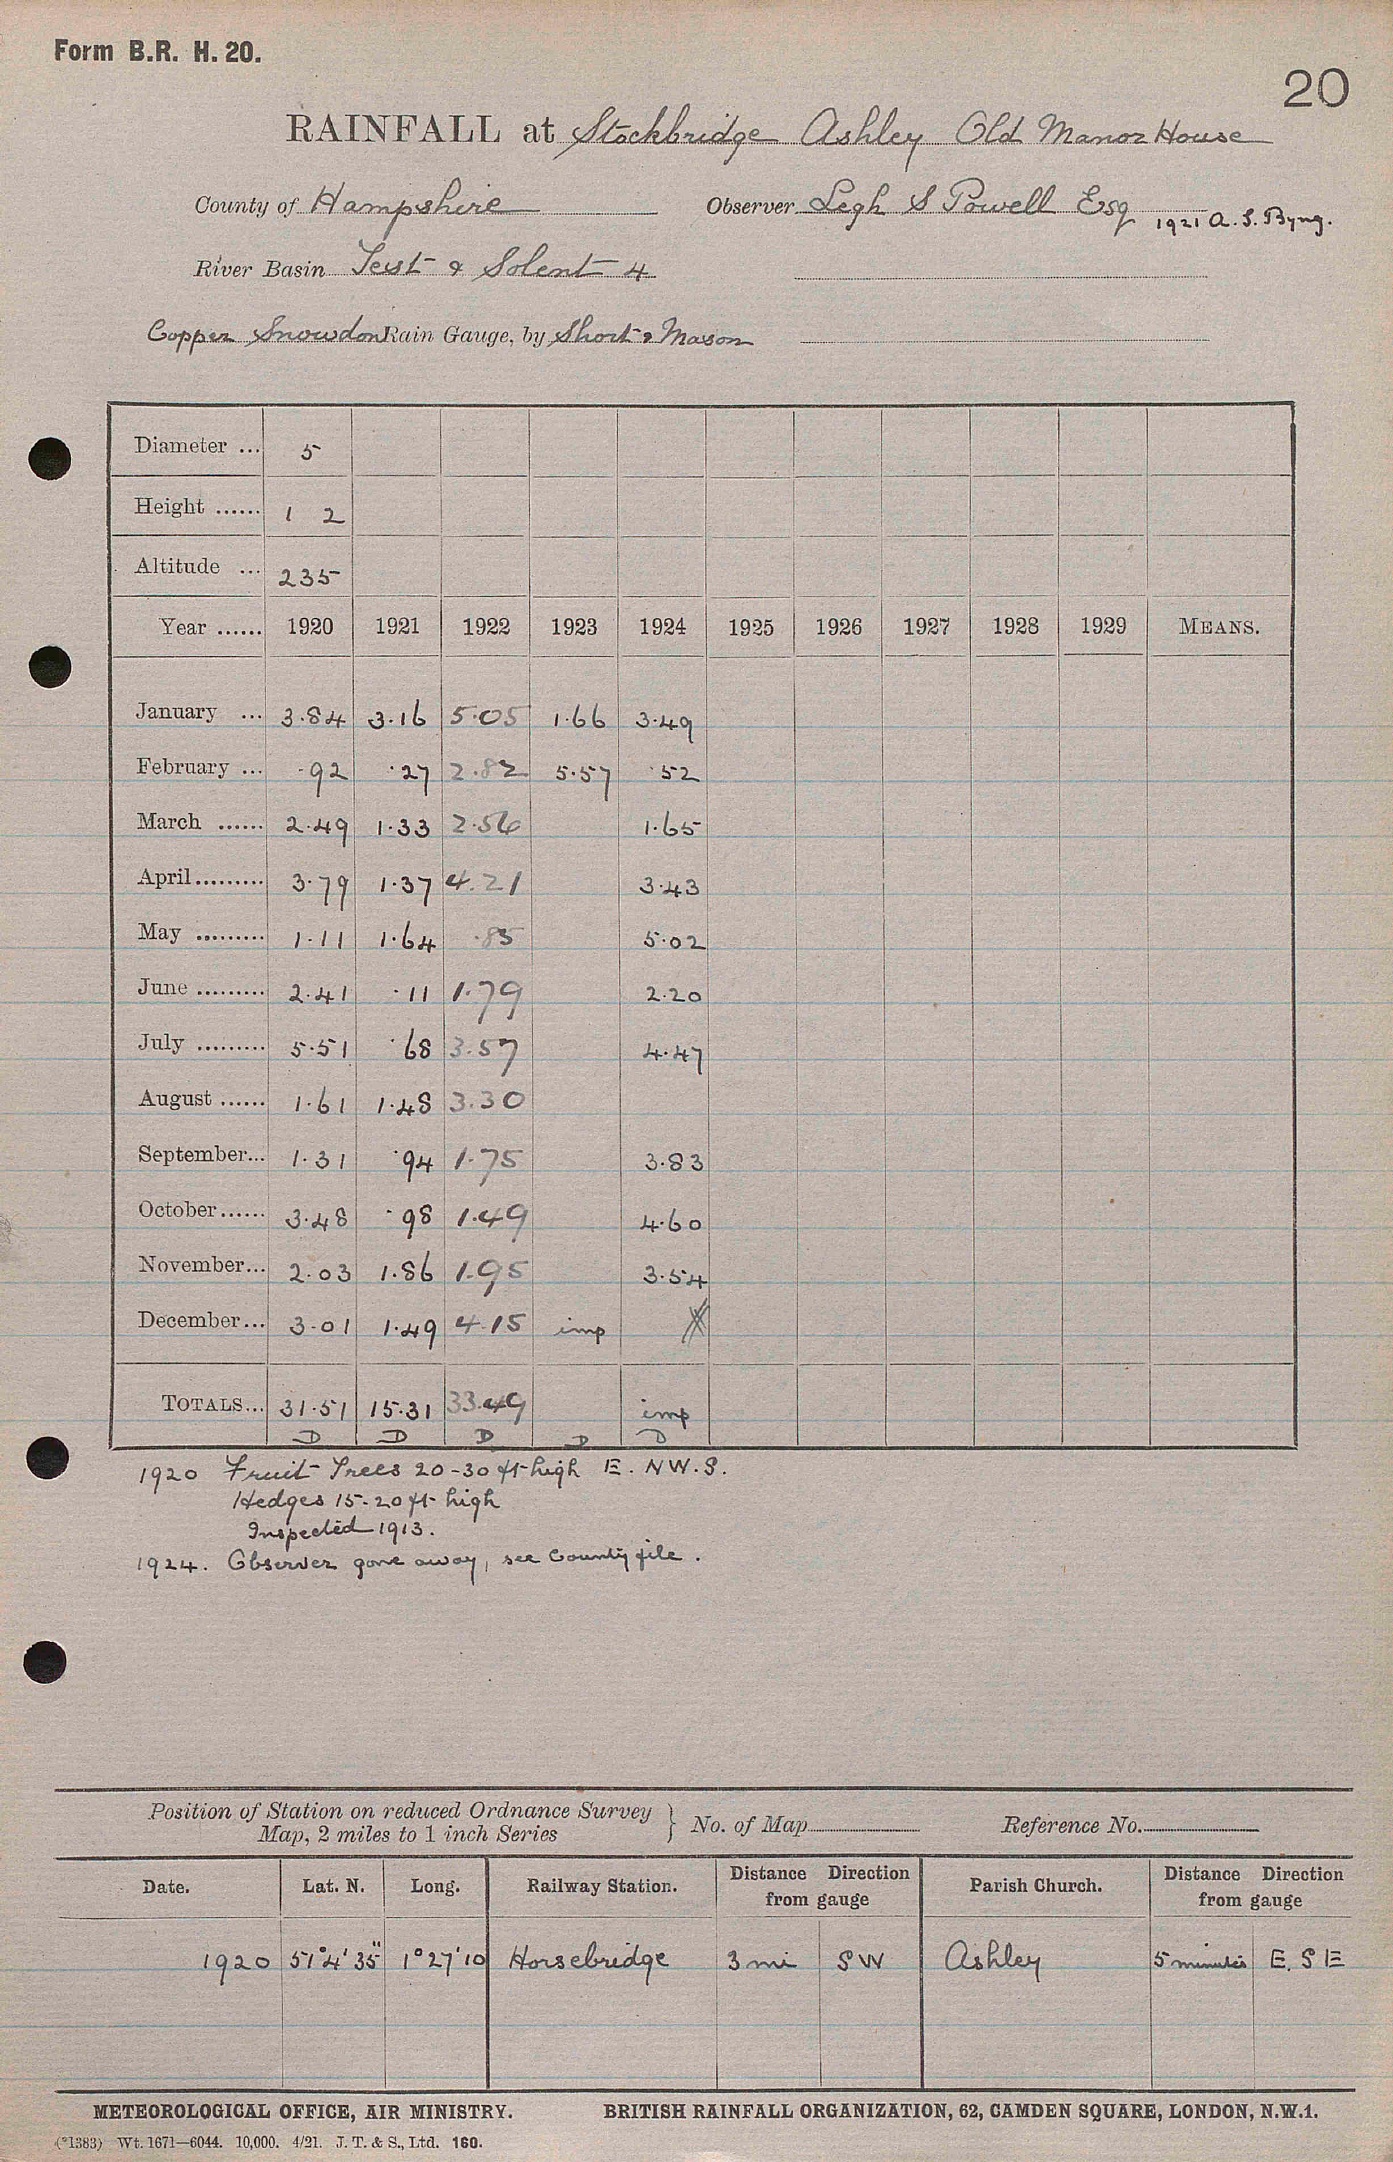 Form B.R. H. 20.
20
RAINFALL at Stockbridge Ashley Old Manor House
County of Hampshire Observer Legh S Powell Esq 1921 A. S. Byng.
River Basin Test & Solent 4
Copper Snowdon Rain Gauge, by Short & Mason
Diameter ... 5
Height ...... 1 2
Altitude ... 235
Year ...... 1920 1921 1922 1923 1924 1925 1926 1927 1928 1929 MEANS.
January ... 3.84 3.16 5.05 1.66 3.49
February ... .92 .27 2.82 5.57 .52
March ...... 2.49 1.33 2.56 1.65
April......... 3.79 1.37 4.21 3.43
May ......... 1.11 1.64 .85 5.02
June ......... 2.41 .11 1.79 2.20
July ......... 5.51 .68 3.57 4.47
August ...... 1.61 1.48 3.30
September... 1.31 .94 1.75 3.83
October...... 3.48 .98 1.49 4.60
November... 2.03 1.86 1.95 3.54
December... 3.01 1.49 4.15 imp
TOTALS... 31.51 15.31 33.49 imp
D D D D D
1920 Fruit Trees 20-30 ft high E. NW. S.
Hedges 15-20 ft high
Inspected 1913.
1924. Observer gone away, see County file.
Position of Station on reduced Ordnance Survey
Map, 2 miles to 1 inch Series } No. of Map Reference No.
Date. Lat. N. Long. Railway Station. Distance Direction from gauge Parish Church. Distance Direction from gauge
1920 51°4'35" 1°27'10 Horsebridge 3 mi SW Ashley 5 minutes E. S E
METEOROLOGICAL OFFICE, AIR MINISTRY. BRITISH RAINFALL ORGANIZATION, 62, CAMDEN SQUARE, LONDON, N.W.1.
(*1383) Wt. 1671—6044. 10,000. 4/21. J. T. & S., Ltd. 160.